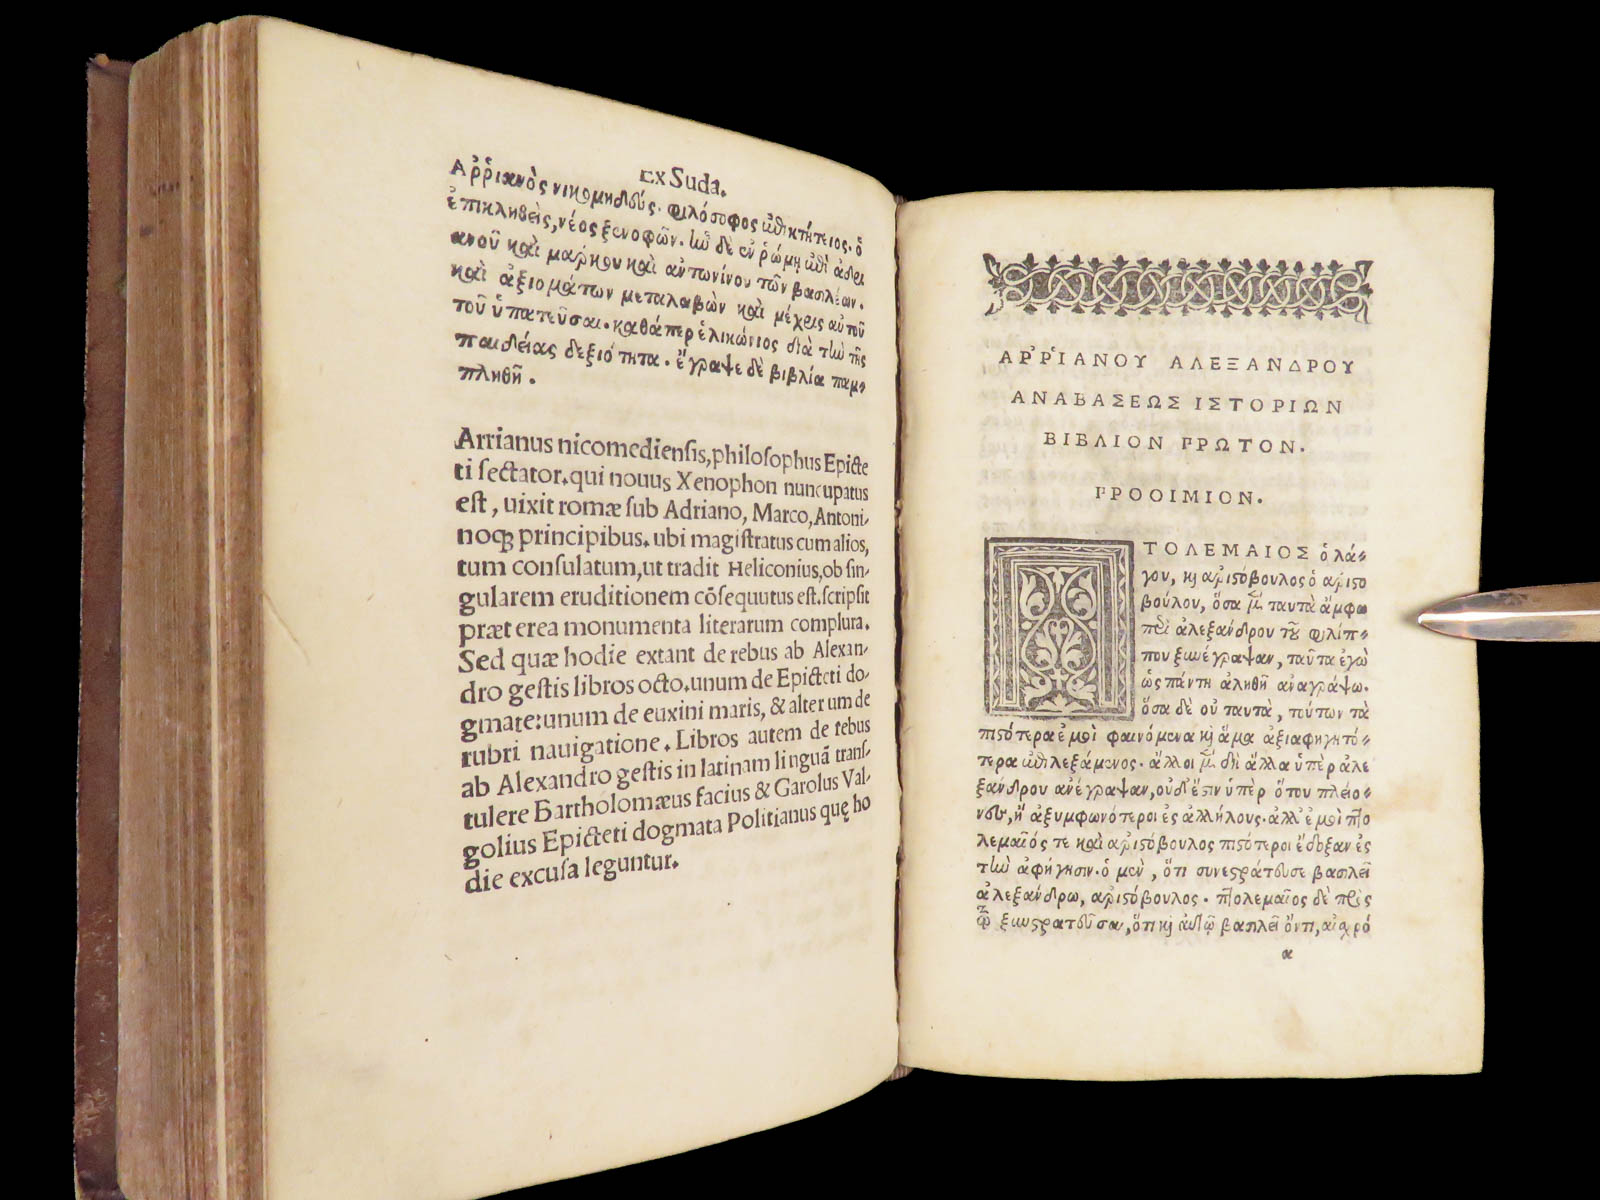 Ex Suda.
Αῤῥιανὸς νικομηδεύς. φιλόσοφος ἐπικτήτειος. ὁ
ἐπικληθεὶς, νέος ξενοφῶν. ἦν δὲ ἐν ῥώμῃ ἐπὶ ἀδρι
ανοῦ καὶ μάρκου καὶ ἀντωνίνου τῶν βασιλέων.
καὶ ἀξιομάτων μεταλαβὼν καὶ μέχρις αὐτοῦ
τοῦ ὑπατεῦσαι. καθάπερ ἑλικώνιος διὰ τὴν τῆς
παιδείας δεξιότητα. ἔγραψε δὲ βιβλία παμ-
πληθῆ.
Arrianus nicomediensis, philosophus Epicte
ti sectator. qui nouus Xenophon nuncupatus
est, uixit romæ sub Adriano, Marco, Antoni-
noq; principibus. ubi magistratus cum alios,
tum consulatum, ut tradit Heliconius, ob sin-
gularem eruditionem cōsequutus est. scripsit
præterea monumenta literarum complura.
Sed quæ hodie extant de rebus ab Alexan-
dro gestis libros octo. unum de Epicteti do-
gmate: unum de euxini maris, & alterum de
rubri nauigatione. Libros autem de rebus
ab Alexandro gestis in latinam linguā trans-
tulere Bartholomæus facius & Garolus Val-
golius Epicteti dogmata Politianus quę ho
die excusa leguntur.
ΑΡῬΙΑΝΟΥ ΑΛΕΞΑΝΔΡΟΥ
ΑΝΑΒΑΣΕΩΣ ΙΣΤΟΡΙΩΝ
ΒΙΒΛΙΟΝ ΠΡΩΤΟΝ.
ΠΡΟΟΙΜΙΟΝ.
ΤΟΛΕΜΑΙΟΣ ὁ λά-
γου, καὶ ἀριστόβουλος ὁ ἀριστο
βούλου, ὅσα μὲν ταυτὰ ἄμφω
περὶ ἀλεξάνδρου τοῦ φιλίπ-
που ξυνέγραψαν, ταῦτα ἐγὼ
ὡς πάντη ἀληθῆ ἀναγράφω.
ὅσα δὲ οὐ ταυτὰ, τούτων τὰ
πιστότερα ἐμοὶ φαινόμενα καὶ ἅμα ἀξιαφηγητό-
τερα ἐπιλεξάμενος. ἄλλοι μὲν δὴ ἄλλα ὑπὲρ ἀλε
ξάνδρου ἀνέγραψαν, οὐδ' ἔστιν ὑπὲρ ὅτου πλείο-
νες, ἢ ἀξυμφωνότεροι ἐς ἀλλήλους. ἀλλ' ἐμοὶ πτο
λεμαῖός τε καὶ ἀριστόβουλος πιστότεροι ἔδοξαν ἐς
τὴν ἀφήγησιν. ὁ μὲν, ὅτι συνεστράτευσε βασιλεῖ
ἀλεξάνδρῳ, ἀριστόβουλος. πτολεμαῖος δὲ πρὸς
τῷ ξυστρατεῦσαι, ὅτι καὶ αὐτῷ βασιλεῖ ὄντι, αἰσχρό
α